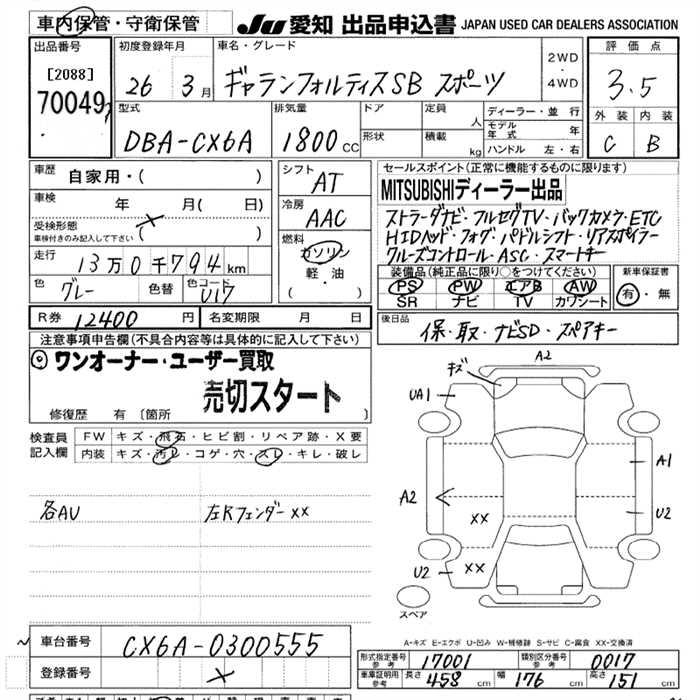 車内保管・守衛保管
JU 愛知 出品申込書 JAPAN USED CAR DEALERS ASSOCIATION
出品番号
[2088]
70049
初度登録年月
26年 3月
車名・グレード
ギャランフォルティスSB スポーツ
2WD
・
4WD
評価点
3.5
外装 内装
C B
型式
DBA-CX6A
排気量
1800cc
ドア
形状
定員 人
積載 kg
ディーラー・並行
モデル年式 年
ハンドル 左・右
車歴 自家用・( )
車検 年 月( 日)
受検形態
車検付きのみ記入して下さい
×
( )
走行 13万0千794km
色 グレー 色替 色コード U17
シフト AT
冷房 AAC
燃料
ガソリン
軽・油
( )
R券 12400円 名変期限 月 日
セールスポイント(正常に機能するものに限ります)
MITSUBISHIディーラー出品
ストラーダナビ・フルセグTV・バックカメラ・ETC
HIDヘッド・フォグ・パドルシフト・リアスポイラー
クルーズコントロール・ASC・スマートキー
装備品(純正品に限り○をつけてください)
PS PW エアB AW
SR ナビ TV カワシート
新車保証書
有・無
後日品
保・取・ナビSD・スペアキー
注意事項申告欄(不具合内容等は具体的に記入して下さい)
◎ワンオーナー・ユーザー買取
売切スタート
修復歴 有〔箇所 〕
検査員記入欄
FW キズ・飛石・ヒビ割・リペア跡・X要
内装 キズ・汚レ・コゲ・穴・スレ・キレ・破レ
各AU 左Rフェンダーxx
A2
キズ
UA1
A1
A2
U2
XX
U2
XX
スペア
A-キズ E-エクボ U-凹み W-補修跡 S-サビ C-腐食 XX-交換済
車台番号 CX6A-0300555
登録番号 ×
形式指定番号 参考 17001 類別区分番号 参考 0017
車庫証明用 参考 長さ 458cm 幅 176cm 高さ 151cm